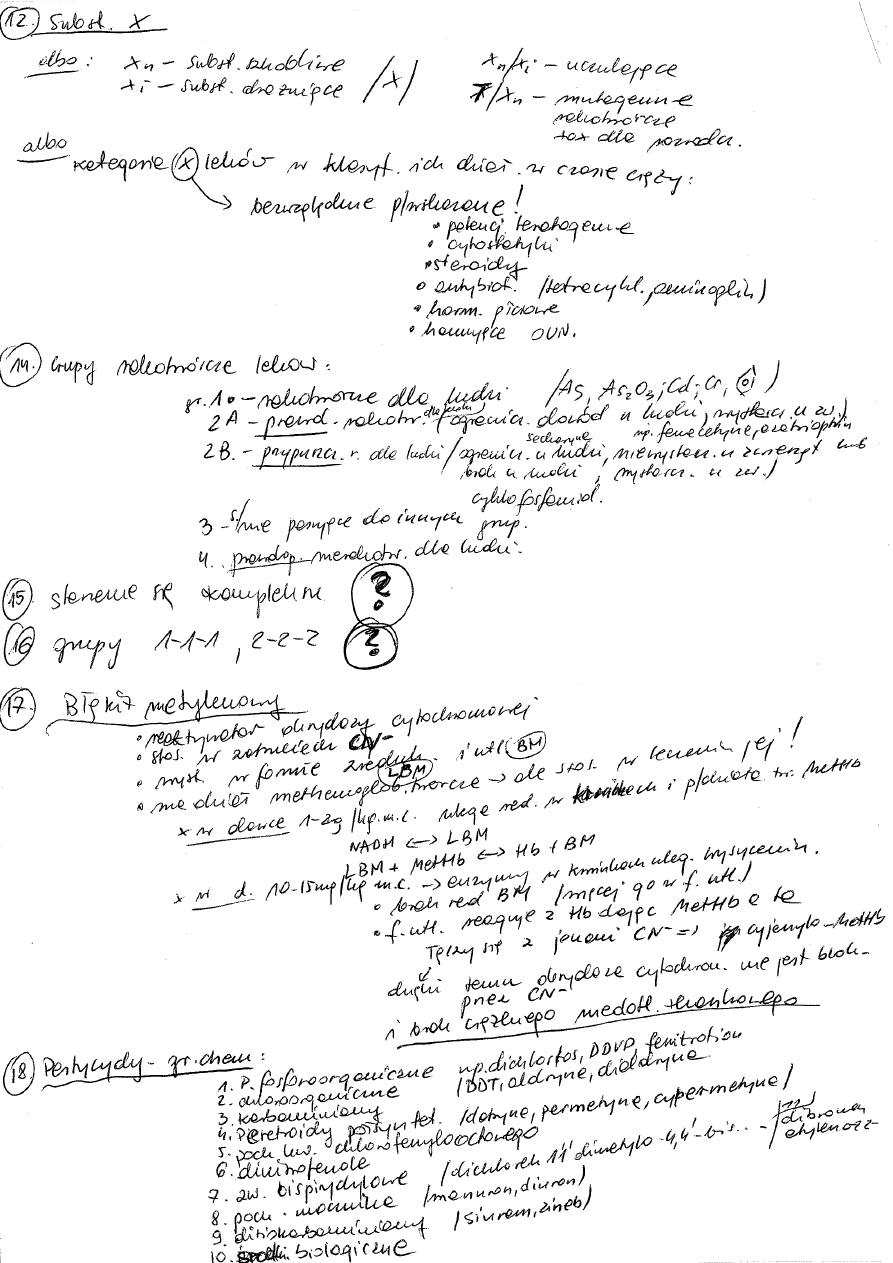 12. Subst. X
albo: Xn – subst. szkodliwe
Xi – subst. drażniące /X/
Xn/Xi – uczulające
T/Xn – mutagenne
rakotwórcze
tox dla rozrodu.
albo
kategorie X leków w klasyf. ich dział. w czasie ciąży:
bezwzględnie p/wskazane!
• potencj. teratogenne
• cytostatyki
• steroidy
• antybiot. /tetracykl., aminoglik/
• horm. płciowe
• hamujące OUN.
14. Grupy rakotwórcze leków:
gr. 1 – rakotwórcze dla ludzi /As, As2O3; Cd; Cr, )
2A – prawd. rakotw. dla ludzi /ogranicz. dowód u ludzi, wystarcz. u zw./
np. fenacetyna, azatriopryn
2B. – przypuszcz. r. dla ludzi /ogranicz. u ludzi, niewystarcz. u zwierząt lub
brak u ludzi, wystarcz. u zw./
cyklofosfamid.
3 – s/nie pasujące do innych grup.
4. prawdop. nierakotw. dla ludzi.
15. starzenie się kompleksu ?
16 grupy 1-1-1, 2-2-2 ?
17. Błękit metylenowy
• reaktywator oksydazy cytochromowej
• stos. w zatruciach CN-
• wyst. w formie zreduk. LBM i utl BM
• ma dział methemoglob. twórcze → ale stos. w leczeniu jej!
x w dawce 1-2g /kg.m.c. ulega red. w i p/działa tw. MetHb
NADH ↔ LBM
LBM + MetHb ↔ Hb + BM
x w d. 10-15mg/kg m.c. → enzymy w krwinkach uleg. wysyceniu.
• brak red BM /więcej go w f. utl./
• f. utl. reaguje z Hb dając MetHb a ta
łączy się z jonami CN- => cyjanylo-MetHb
dzięki temu oksydaza cytochrom. nie jest blok-
przez CN-
i brak ciężkiego niedotl. tkankowego
18. Pestycydy – gr. chem:
1. P. fosforoorganiczne np. dichlorfos, DDVP, fenitrotion
2. chloroorganiczne /DDT, aldryna, dialdryna
3. karbaminiany
4. Pyretroidy postyntet. /datryna, permetryna, cypermetryna/
5. poch. kw. chlorofenylooctowego
6. dinitrofenole
7. zw. bispirydylowe /dichlorek 1,1' dimetylo-4,4'-bis... - /dibromek
etyleno 22-
8. poch. mocznika /monuron, diuron/
9. ditiokarbaminiany /siuram, zineb/
10. biologiczne